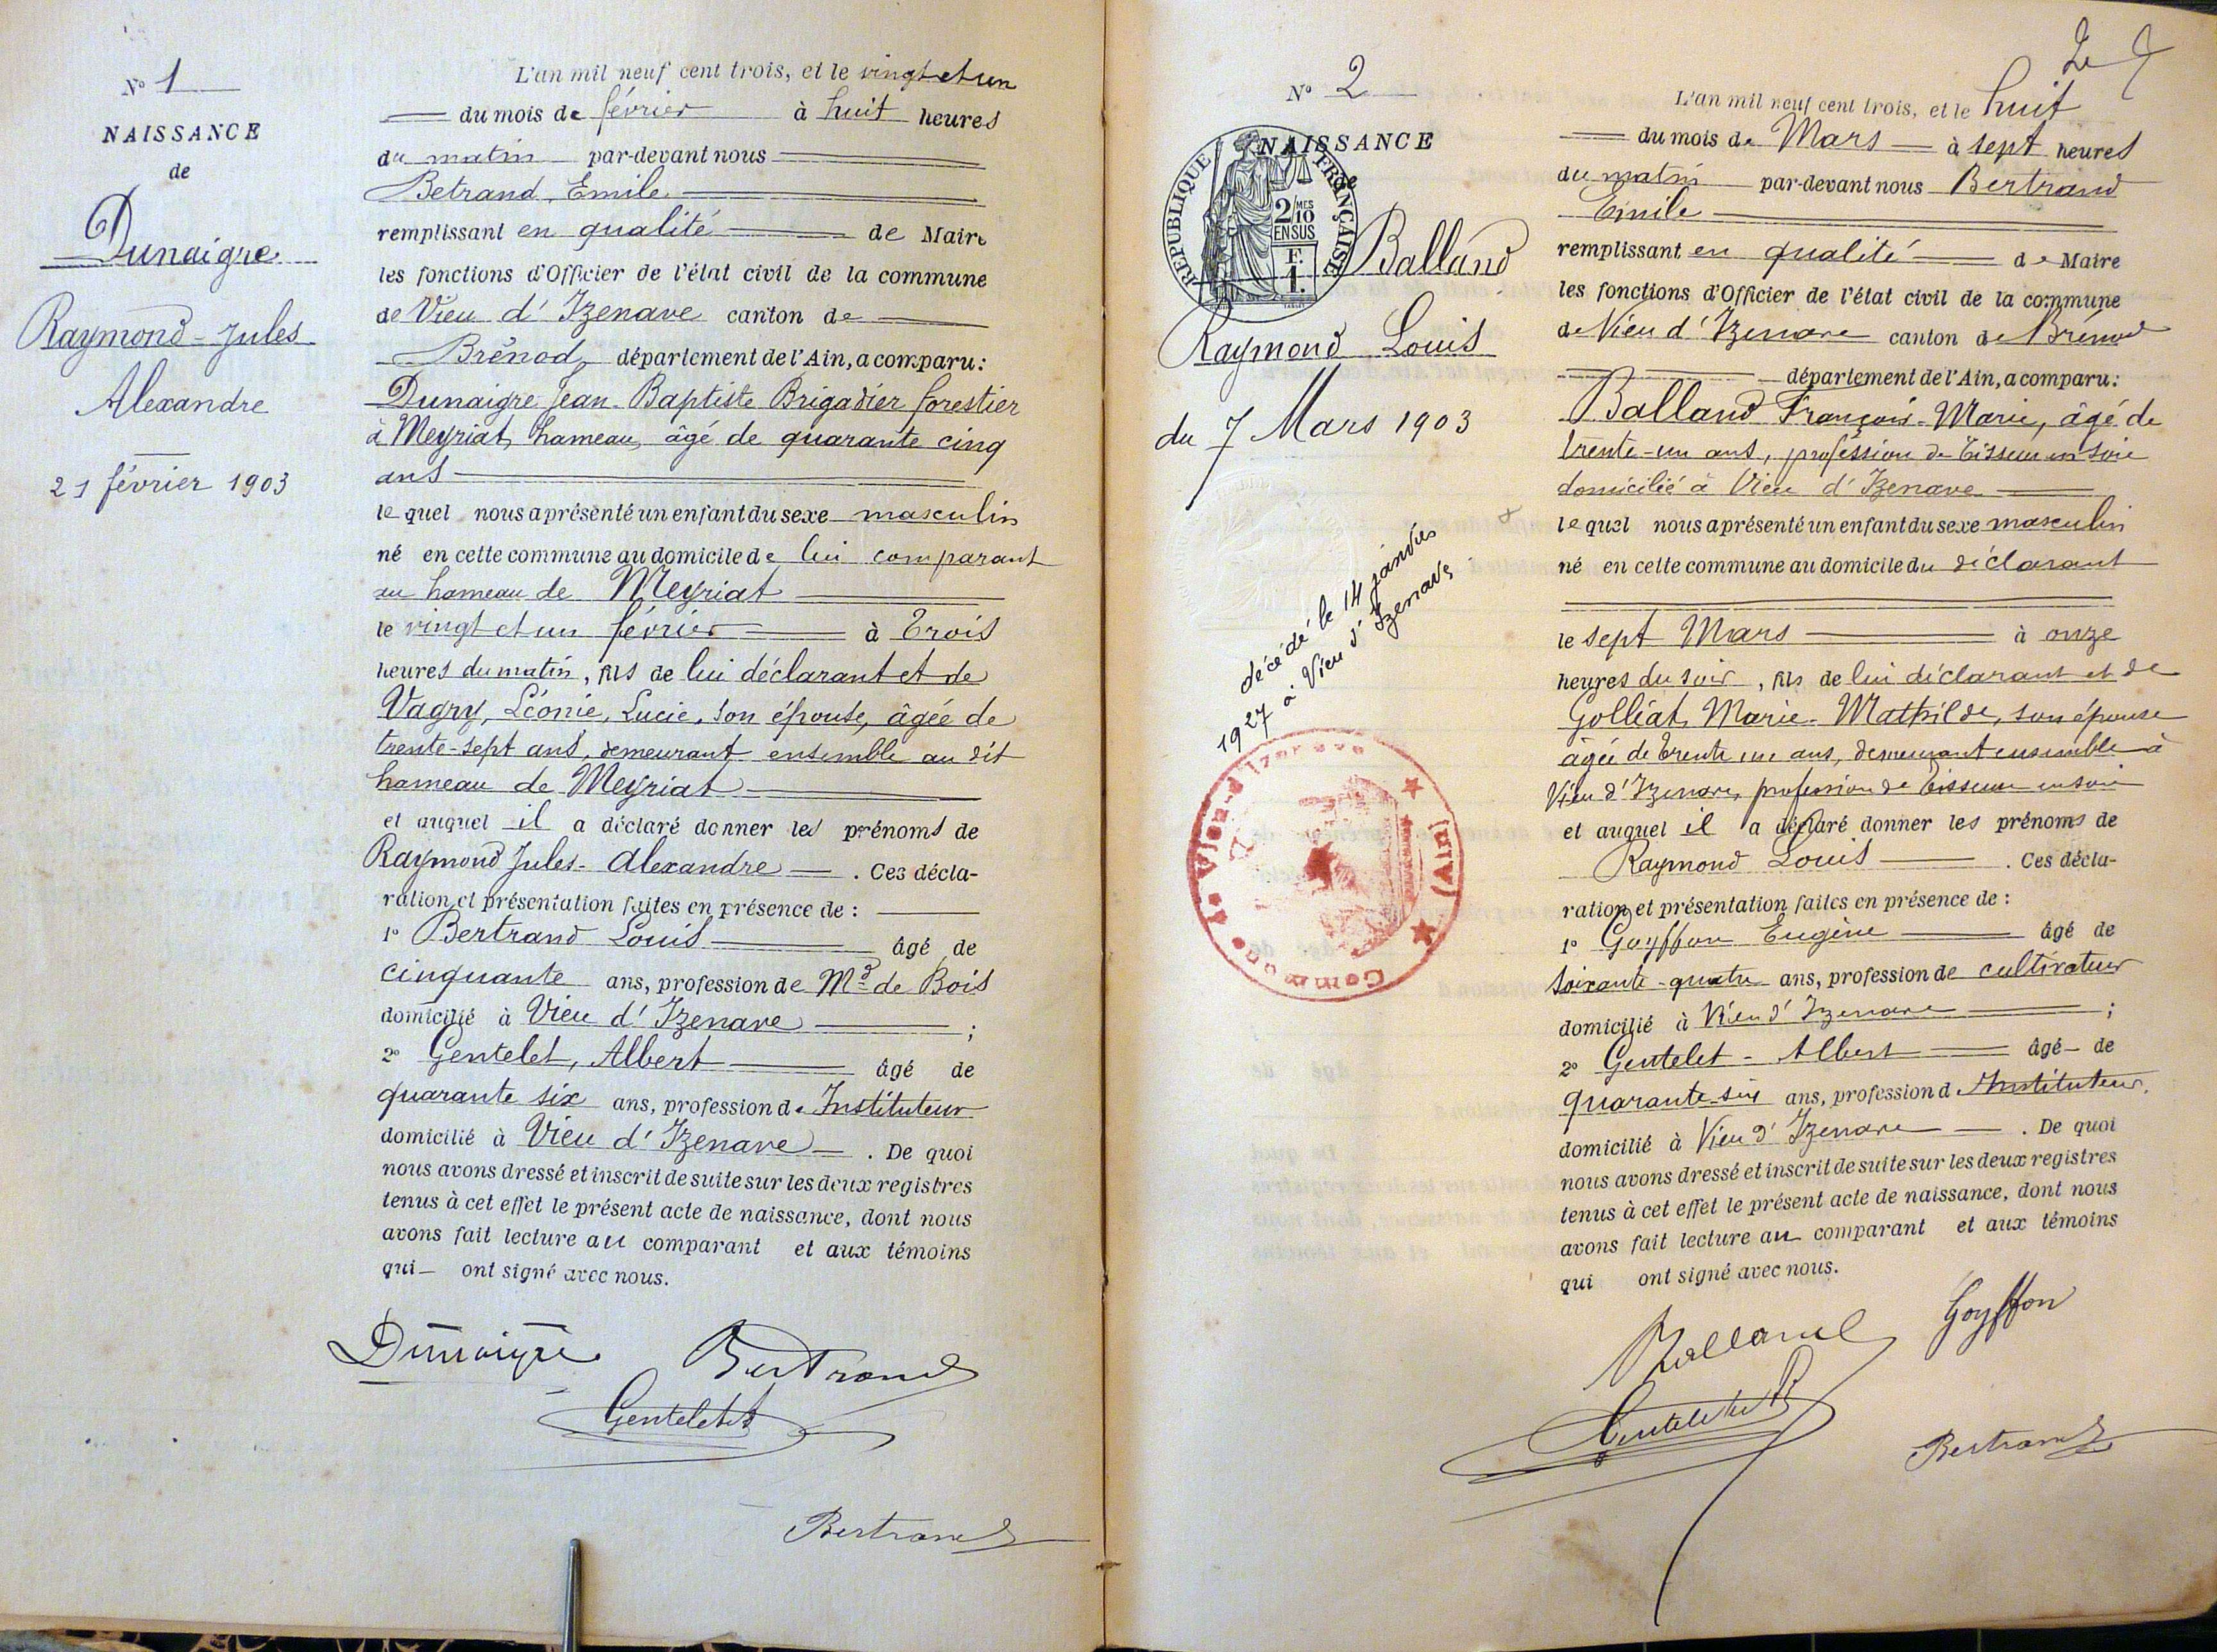 N° 1
NAISSANCE
de
Dunaigre
Raymond-Jules
Alexandre
21 février 1903
L'an mil neuf cent trois, et le vingt et un
du mois de février à huit heures
du matin par-devant nous
Betrand, Emile
remplissant en qualité de Maire
les fonctions d'Officier de l'état civil de la commune
de Vieu d'Izenave canton de
Brénod département de l'Ain, a comparu :
Dunaigre Jean-Baptiste Brigadier forestier
à Meyriat, hameau, âgé de quarante cinq
ans
le quel nous a présenté un enfant du sexe masculin
né en cette commune au domicile de lui comparant
au hameau de Meyriat
le vingt et un février à trois
heures du matin, fils de lui déclarant et de
Vagry, Léonie, Lucie, son épouse, âgée de
trente-sept ans, demeurant ensemble au dit
hameau de Meyriat
et auquel il a déclaré donner les prénoms de
Raymond Jules-Alexandre. Ces décla-
ration et présentation faites en présence de :
1° Bertrand Louis âgé de
cinquante ans, profession de Md de Bois
domicilié à Vieu d'Izenave ;
2° Gentelet, Albert âgé de
quarante six ans, profession d. Instituteur
domicilié à Vieu d'Izenave. De quoi
nous avons dressé et inscrit de suite sur les deux registres
tenus à cet effet le présent acte de naissance, dont nous
avons fait lecture au comparant et aux témoins
qui ont signé avec nous.
Dunaigre Bertrand
Gentelet
Bertrand
N° 2
NAISSANCE
de
REPUBLIQUE FRANÇAISE
2/10 MES
EN SUS
F.
1.
Balland
Raymond Louis
du 7 Mars 1903
décédé le 14 janvier
1927 à Vieu d'Izenave
Commune de Vieu-d'Izenave (Ain)
L'an mil neuf cent trois, et le huit
du mois de Mars à sept heures
du matin par-devant nous Bertrand
Emile
remplissant en qualité de Maire
les fonctions d'Officier de l'état civil de la commune
de Vieu d'Izenave canton de Brénod
département de l'Ain, a comparu :
Balland François-Marie, âgé de
trente-un ans, profession de Tisseur en soie
domicilié à Vieu d'Izenave
le quel nous a présenté un enfant du sexe masculin
né en cette commune au domicile du déclarant
le sept Mars à onze
heures du soir, fils de lui déclarant et de
Golliat, Marie-Mathilde, son épouse
âgée de trente un ans, demeurant ensemble à
Vieu d'Izenave, profession de Tisseuse en soie
et auquel il a déclaré donner les prénoms de
Raymond Louis. Ces décla-
ration et présentation faites en présence de :
1° Goyffon Eugène âgé de
soixante-quatre ans, profession de cultivateur
domicilié à Vieu d'Izenave ;
2° Gentelet-Albert âgé de
quarante-six ans, profession d Instituteur,
domicilié à Vieu d'Izenave. De quoi
nous avons dressé et inscrit de suite sur les deux registres
tenus à cet effet le présent acte de naissance, dont nous
avons fait lecture au comparant et aux témoins
qui ont signé avec nous.
Balland Goyffon
Gentelet
Bertrand